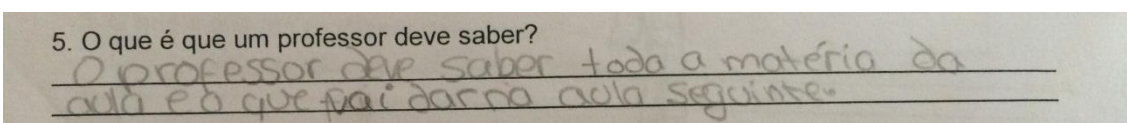 5. O que é que um professor deve saber?
O professor deve saber toda a matéria da
aula e o que vai dar na aula seguinte.